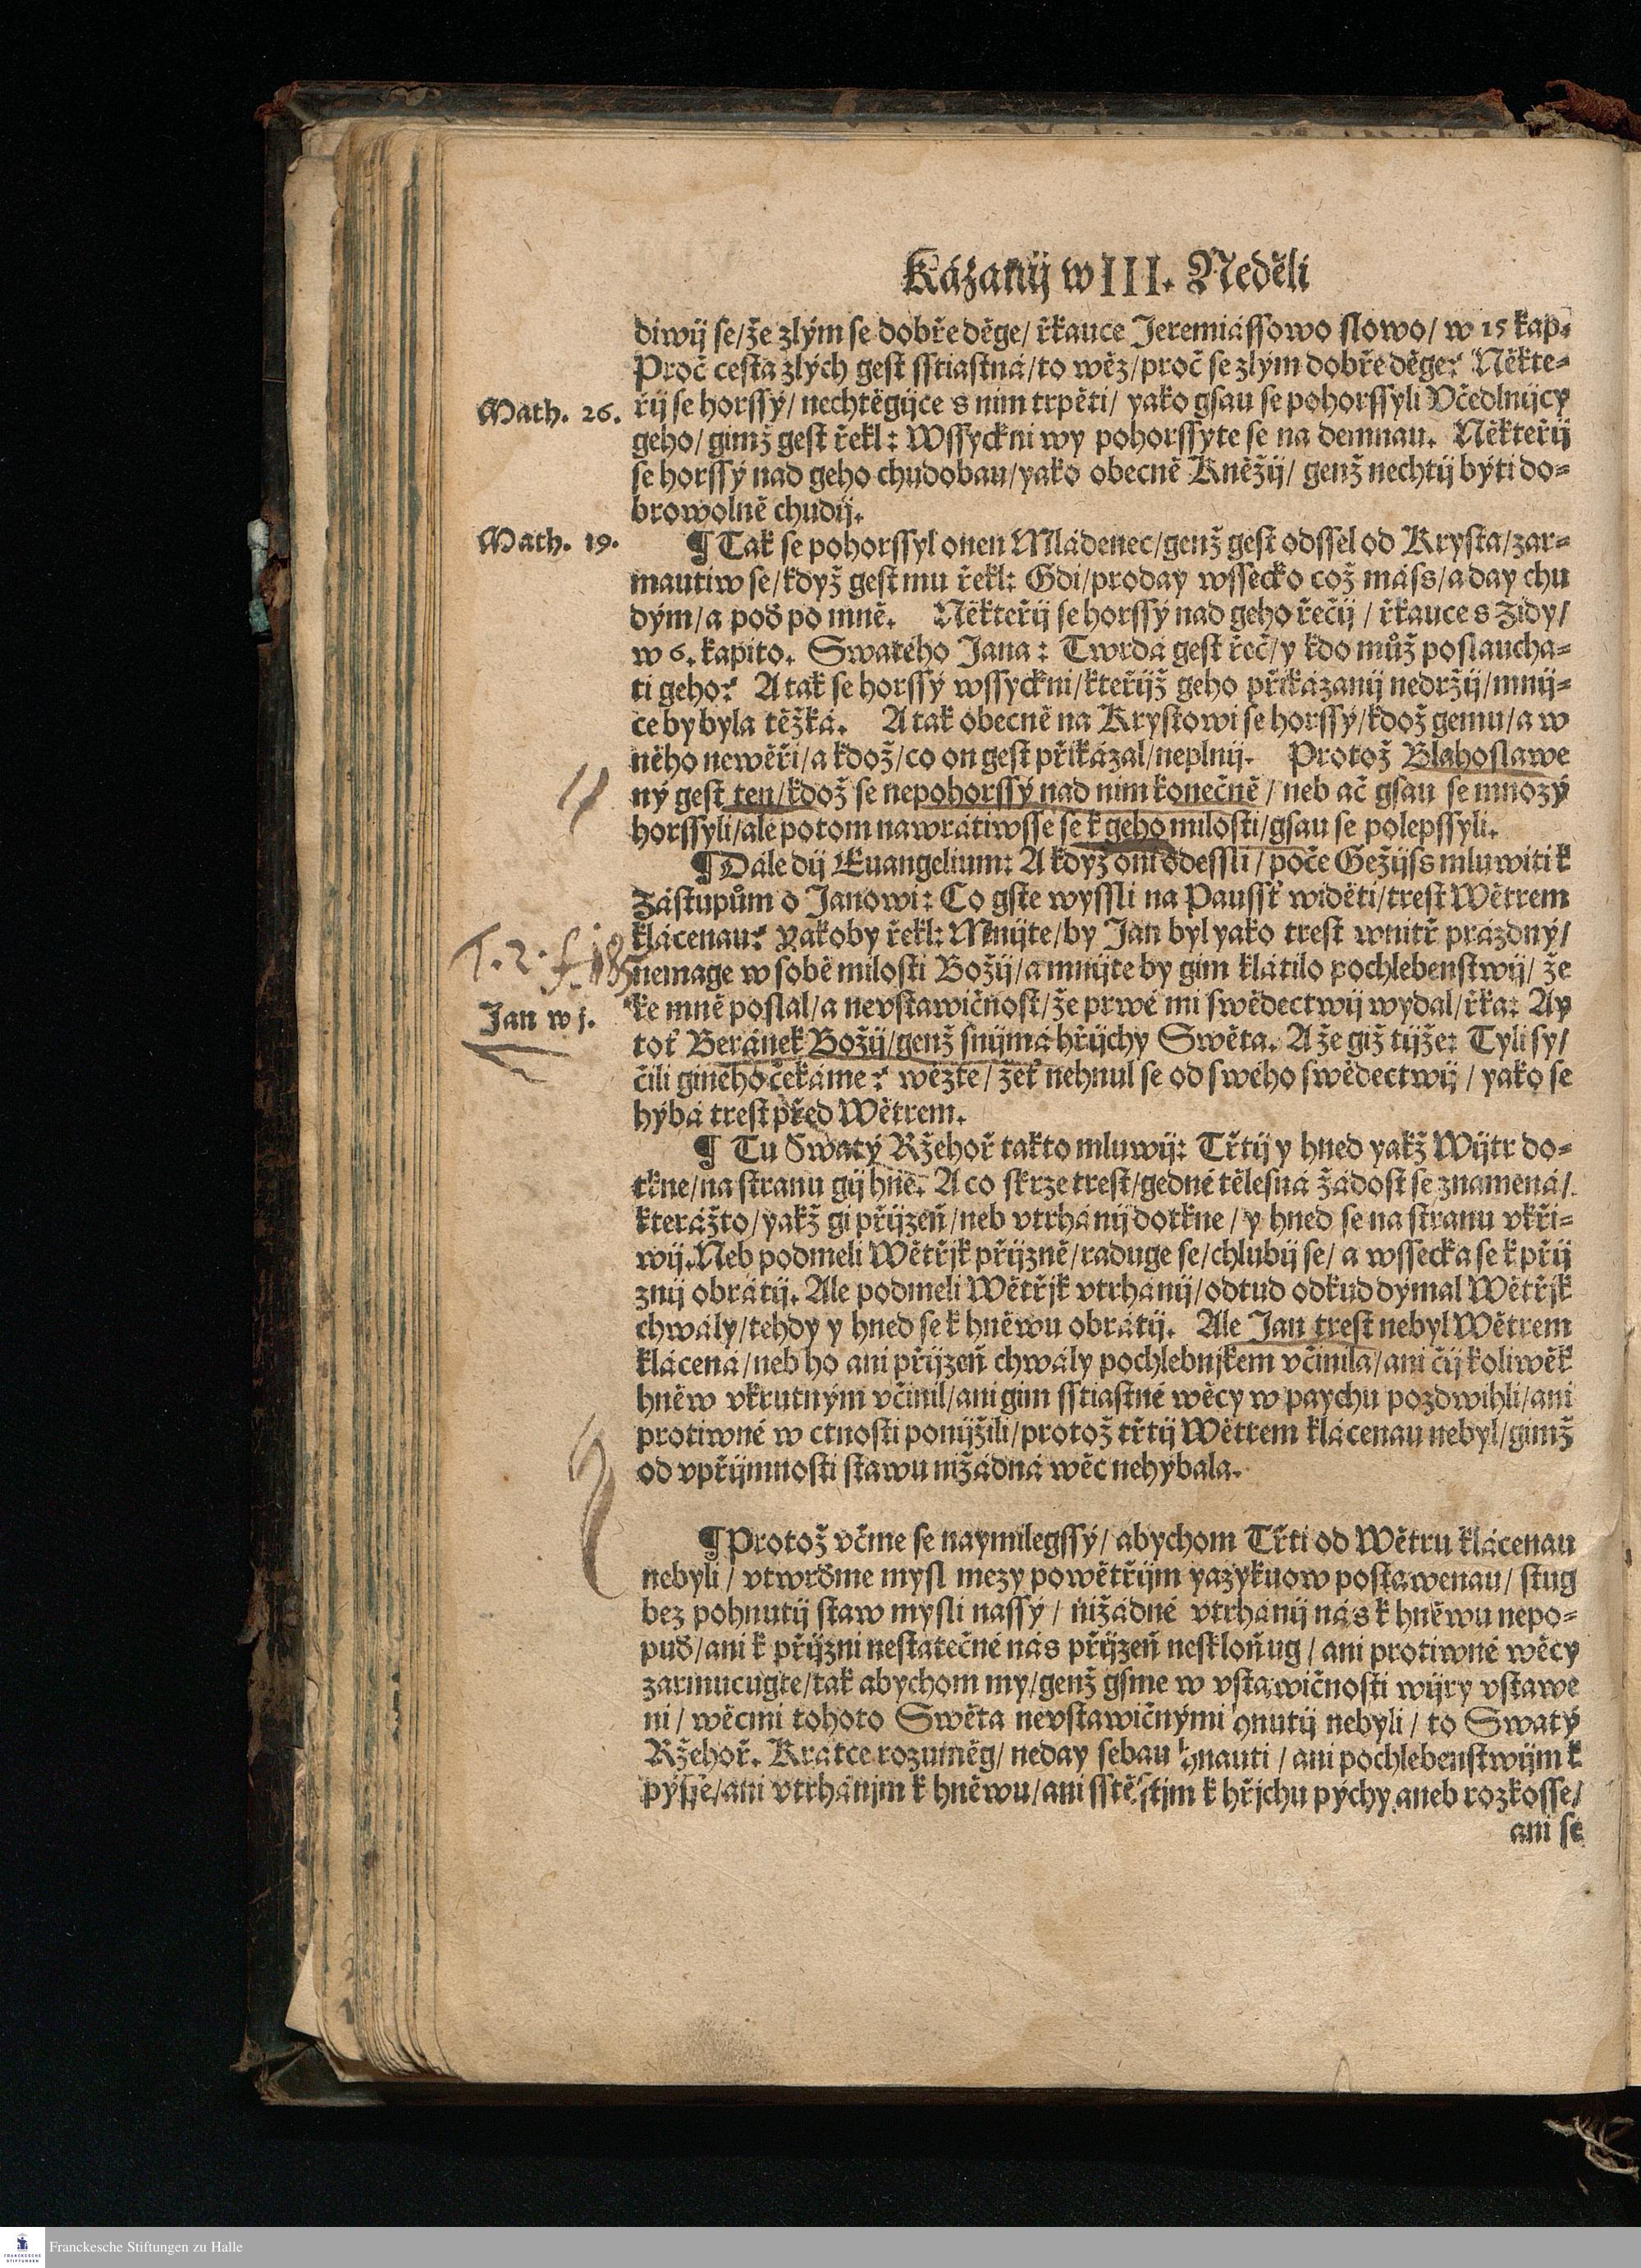 Kázanij w III. Neděli
diwij se/že zlým se dobře děge/ řkauce Jeremiássowo slowo/ w 15 kap.
Proč cesta zlých gest sstiastná/to wěz/proč se zlým dobře děge? Někte=
Math. 26.
řij se horssý/ nechtěgijce s nim trpěti/ yako gsau se pohorssyli Včedlnijcy
geho/ gimž gest řekl: Wssyckni wy pohorssyte se na demnau. Někteřij
se horssý nad geho chudobau/yako obecně Kněžij/ genž nechtij býti do=
browolně chudij.
Math. 19.
¶ Tak se pohorssyl onen Mládenec/genž gest odssel od Krysta/zar=
mautiw se/když gest mu řekl: Gdi/proday wssecko což máss/a day chu
dým/a poď po mně. Někteřij se horssý nad geho řečij / řkauce s Židy/
w 6. kapito. Swatého Jana: Twrdá gest řeč/y kdo můž poslaucha=
ti geho? A tak se horssý wssyckni/kteřijž geho přikázanij nedržij/mnij=
ce by byla těžká. A tak obecně na Krystowi se horssý/kdož gemu/a w
něho newěři/a kdož/co on gest přikázal/neplnij. Protož Blahoslawe
ný gest ten/kdož se nepohorssý nad nim konečně / neb ač gsau se mnozý
horssyli/ale potom nawrátiwsse se k geho milosti/gsau se polepssyli.
¶ Dále dij Euangelium: A když oni odessli / poče Gežijss mluwiti k
Zástupům o Janowi: Co gste wyssli na Paussť widěti/trest Wětrem
klácenau? Yakoby řekl: Mnijte/by Jan byl yako trest wnitř prázdný/
nemage w sobě milosti Božij/a mnijte by gim klátilo pochlebenstwij/ že
Jan w j.
ke mně poslal/a nevstawičnost/že prwé mi swědectwij wydal/řka: Ay
toť Beránek Božij/genž snijmá hřijchy Swěta. A že giž tijže: Tyli sy/
čili giného čekáme? wězte/ žeť nehnul se od swého swědectwij / yako se
hýbá trest před Wětrem.
¶ Tu Swatý Ržehoř takto mluwij: Třtij y hned yakž Wijtr do=
tkne/na stranu gij hne. A co skrze trest/gedné tělesná žádost se znamená/
kterážto/yakž gi přijzeň/neb vtrhánij dotkne / y hned se na stranu vkři=
wij. Neb podmeli Wětřjk přijzně/raduge se/chlubij se/ a wssecka se k přij
znij obrátij. Ale podmeli Wětřjk vtrhánij/odtud odkud dýmal Wětřjk
chwály/tehdy y hned se k hněwu obrátij. Ale Jan trest nebyl Wětrem
klácená/neb ho ani přijzeň chwály pochlebnjkem včinila/ani čij koliwěk
hněw vkrutným včinil/ani gim sstiastné wěcy w paychu pozdwihli/ani
protiwné w ctnosti ponijžili/protož třtij Wětrem klácenau nebyl/gimž
od vpřijmnosti stawu nižádná wěc nehýbala.
¶ Protož včme se naymilegssý/ abychom Třti od Wětru klácenau
nebyli / vtwrďme mysl mezy powětřijm yazykuow postawenau/ stůg
bez pohnutij staw mysli nassý / nižádné vtrhánij nás k hněwu nepo=
puď/ani k přijzni nestatečné nás přijzeň neskloňug / ani protiwné wěcy
zarmucugte/tak abychom my/genž gsme w vstawičnosti wijry vstawe
ni / wěcmi tohoto Swěta nevstawičnými hnutij nebyli / to Swatý
Ržehoř. Krátce rozuměg/ neday sebau hnauti / ani pochlebenstwijm k
pýsse/ani vtrhánjm k hněwu/ani sstěstjm k hřjchu pýchy aneb rozkosse/
ani se
Franckesche Stiftungen zu Halle